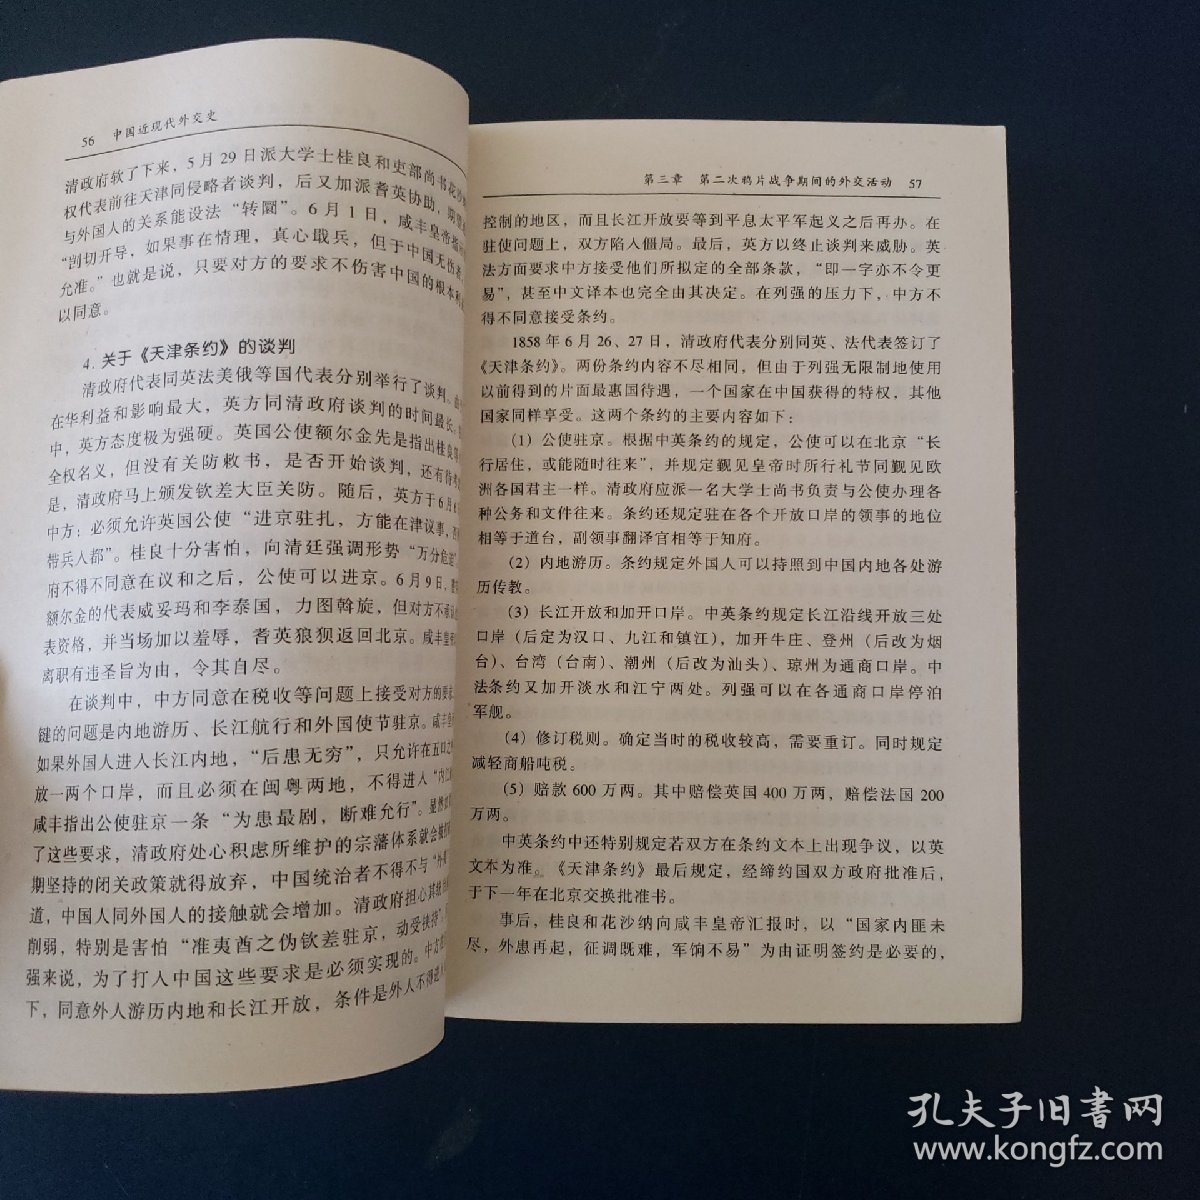 56 中国近现代外交史
清政府软了下来，5月29日派大学士桂良和吏部尚书花沙
权代表前往天津同侵略者谈判，后又加派耆英协助，期望
与外国人的关系能设法“转圜”。6月1日，咸丰皇帝指
“剀切开导，如果事在情理，真心戢兵，但于中国无伤者，
允准。”也就是说，只要对方的要求不伤害中国的根本利
以同意。
4. 关于《天津条约》的谈判
清政府代表同英法美俄等国代表分别举行了谈判。由
在华利益和影响最大，英方同清政府谈判的时间最长。
中，英方态度极为强硬。英国公使额尔金先是指出桂良
全权名义，但没有关防敕书，是否开始谈判，还有待
是，清政府马上颁发钦差大臣关防。随后，英方于6月
中方：必须允许英国公使“进京驻扎，方能在津议事，
带兵入都”。桂良十分害怕，向清廷强调形势“万分危迫
府不得不同意在议和之后，公使可以进京。6月9日，
额尔金的代表威妥玛和李泰国，力图斡旋，但对方不承认
表资格，并当场加以羞辱，耆英狼狈返回北京。咸丰皇
离职有违圣旨为由，令其自尽。
在谈判中，中方同意在税收等问题上接受对方的要求
键的问题是内地游历、长江航行和外国使节驻京。咸丰
如果外国人进入长江内地，“后患无穷”，只允许在五口之
放一两个口岸，而且必须在闽粤两地，不得进入“内江
咸丰指出公使驻京一条“为患最剧，断难允行”。显然
了这些要求，清政府处心积虑所维护的宗藩体系就会被
期坚持的闭关政策就得放弃，中国统治者不得不与“外
道，中国人同外国人的接触就会增加。清政府担心其统
削弱，特别是害怕“准夷酋之伪钦差驻京，动受挟持”，
强来说，为了打入中国这些要求是必须实现的。中方
下，同意外人游历内地和长江开放，条件是外人不得进入
第三章 第二次鸦片战争期间的外交活动 57
控制的地区，而且长江开放要等到平息太平军起义之后再办。在
驻使问题上，双方陷入僵局。最后，英方以终止谈判来威胁。英
法方面要求中方接受他们所拟定的全部条款，“即一字亦不令更
易”，甚至中文译本也完全由其决定。在列强的压力下，中方不
得不同意接受条约。
1858年6月26、27日，清政府代表分别同英、法代表签订了
《天津条约》。两份条约内容不尽相同，但由于列强无限制地使用
以前得到的片面最惠国待遇，一个国家在中国获得的特权，其他
国家同样享受。这两个条约的主要内容如下：
（1）公使驻京。根据中英条约的规定，公使可以在北京“长
行居住，或能随时往来”，并规定觐见皇帝时所行礼节同觐见欧
洲各国君主一样。清政府应派一名大学士尚书负责与公使办理各
种公务和文件往来。条约还规定驻在各个开放口岸的领事的地位
相等于道台，副领事翻译官相等于知府。
（2）内地游历。条约规定外国人可以持照到中国内地各处游
历传教。
（3）长江开放和加开口岸。中英条约规定长江沿线开放三处
口岸（后定为汉口、九江和镇江），加开牛庄、登州（后改为烟
台）、台湾（台南）、潮州（后改为汕头）、琼州为通商口岸。中
法条约又加开淡水和江宁两处。列强可以在各通商口岸停泊
军舰。
（4）修订税则。确定当时的税收较高，需要重订。同时规定
减轻商船吨税。
（5）赔款600万两。其中赔偿英国400万两，赔偿法国200
万两。
中英条约中还特别规定若双方在条约文本上出现争议，以英
文本为准。《天津条约》最后规定，经缔约国双方政府批准后，
于下一年在北京交换批准书。
事后，桂良和花沙纳向咸丰皇帝汇报时，以“国家内匪未
尽，外患再起，征调既难，军饷不易”为由证明签约是必要的，
孔夫子旧书网
www.kongfz.com